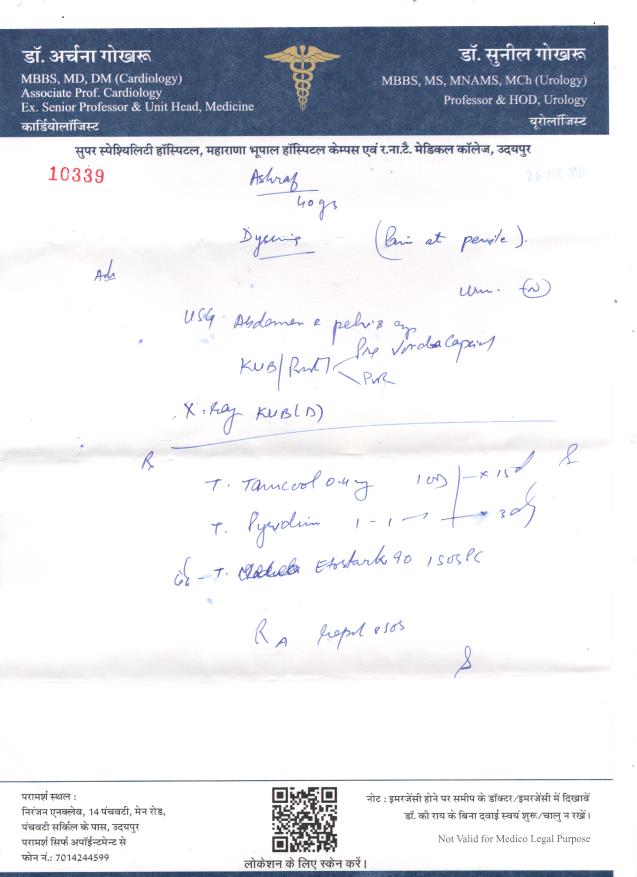 डॉ. अर्चना गोखरू
MBBS, MD, DM (Cardiology)
Associate Prof. Cardiology
Ex. Senior Professor & Unit Head, Medicine
कार्डियोलॉजिस्ट
डॉ. सुनील गोखरू
MBBS, MS, MNAMS, MCh (Urology)
Professor & HOD, Urology
यूरोलॉजिस्ट
सुपर स्पेश्यिलिटी हॉस्पिटल, महाराणा भूपाल हॉस्पिटल केम्पस एवं र.ना.टै. मेडिकल कॉलेज, उदयपुर
10339
28 AUG 202
Ashraf
40
(Pain at penile).
Adv
(N)
USG. Abdomen & pelvis
KUB/ Pre
PVR
X-Ray KUB(D)
Rx
T. 0.4mg 1OD x 15d
T. 1-1
T. Etostark 90 1 SOS PC
परामर्श स्थल :
निरंजन एनक्लेव, 14 पंचवटी, मेन रोड,
पंचवटी सर्किल के पास, उदयपुर
परामर्श सिर्फ अपॉईन्टमेन्ट से
फोन नं.: 7014244599
लोकेशन के लिए स्केन करें।
नोट : इमरजेंसी होने पर समीप के डॉक्टर/इमरजेंसी में दिखावें
डॉ. की राय के बिना दवाई स्वयं शुरू/चालु न रखें।
Not Valid for Medico Legal Purpose